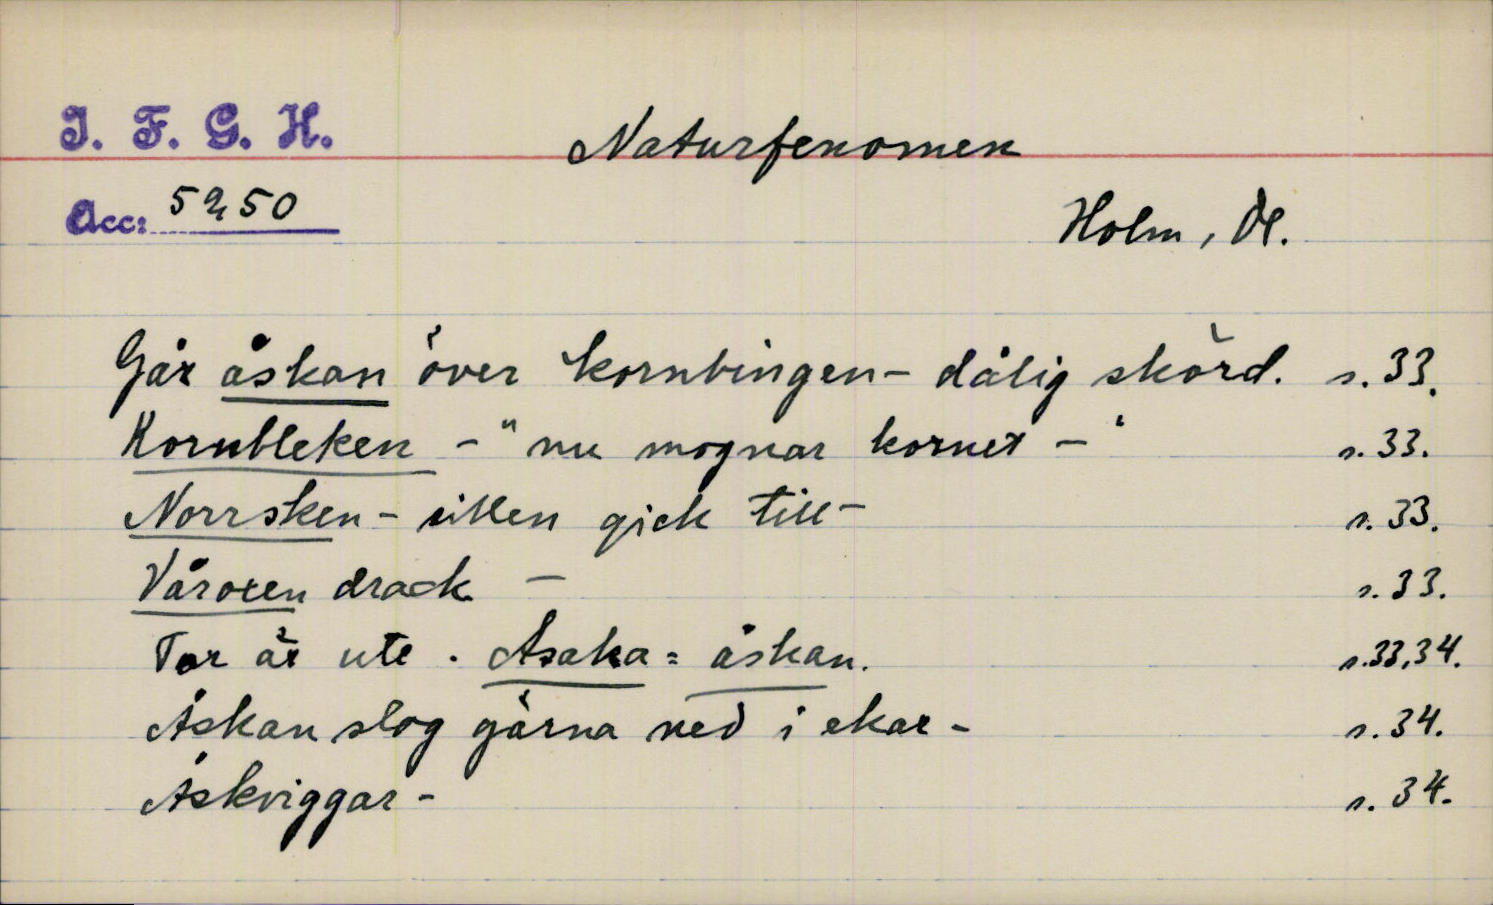 I. F. G. H.
Naturfenomen
Acc: 5250
Holm, Dl.
Går åskan över kornbingen - dålig skörd. s. 33.
Kornbleken - "nu mognar kornet -" s. 33.
Norrsken - sillen gick till - s. 33.
Våroxen drack - s. 33.
Tor är ute. Asaka = åskan. s. 33, 34.
Åskan slog gärna ned i ekar - s. 34.
Åskviggar - s. 34.